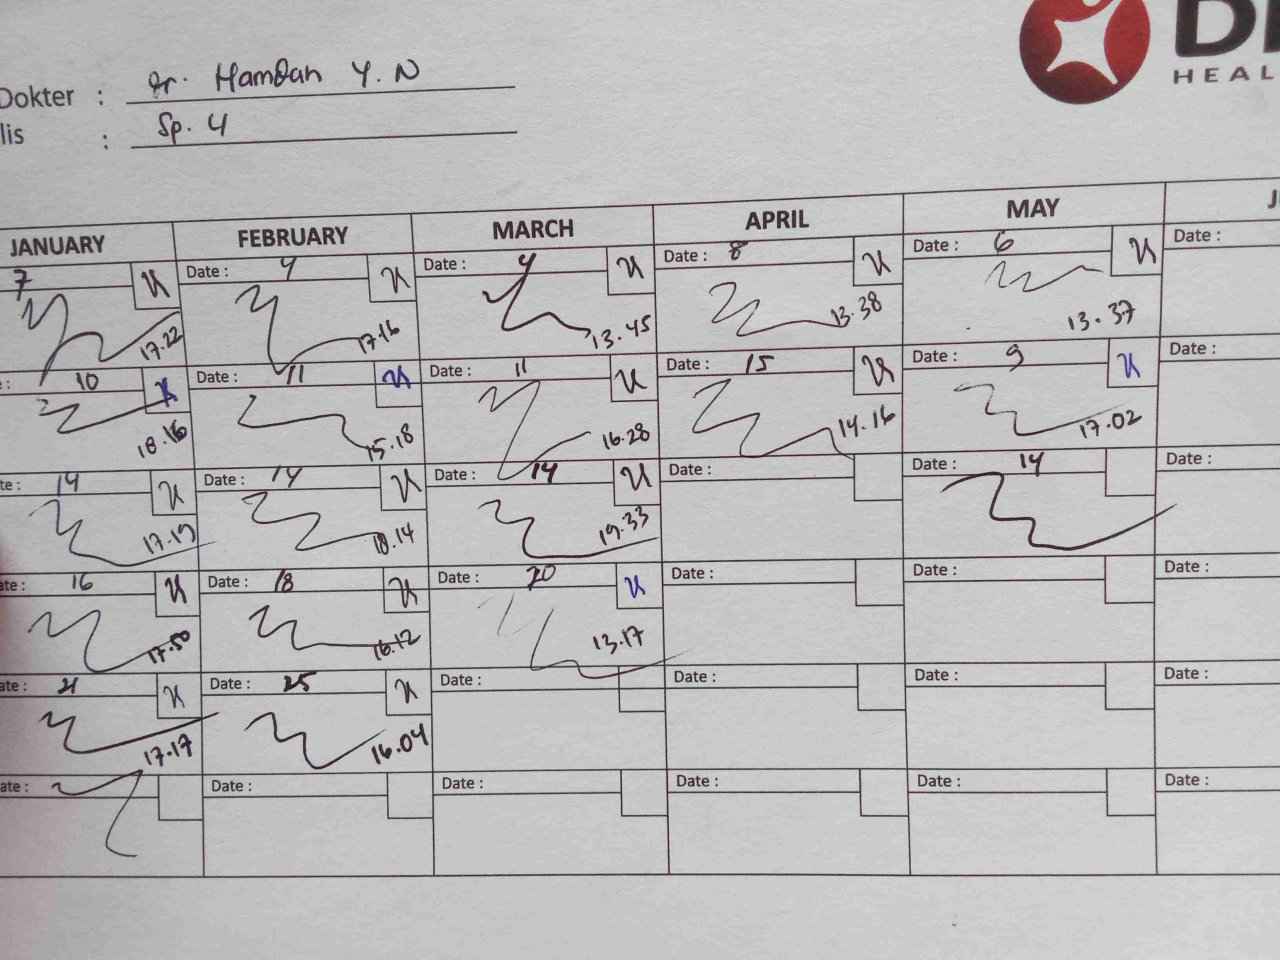 DI
HEAL
Dokter : Dr. Hamdan Y. N
lis : Sp. U
JANUARY FEBRUARY MARCH APRIL MAY J
7 Date : 4 Date : 4 Date : 8 Date : 6 Date :
17.22 17.16 13.45 13.38 13.37
: 10 Date : 11 Date : 11 Date : 15 Date : 9 Date :
18.16 15.18 16.28 14.16 17.02
te : 14 Date : 14 Date : 14 Date : Date : 14 Date :
17.19 18.14 19.33
ate : 16 Date : 18 Date : 20 Date : Date : Date :
17.50 16.12 13.17
ate : 21 Date : 25 Date : Date : Date : Date :
17.17 16.04
ate : Date : Date : Date : Date : Date :